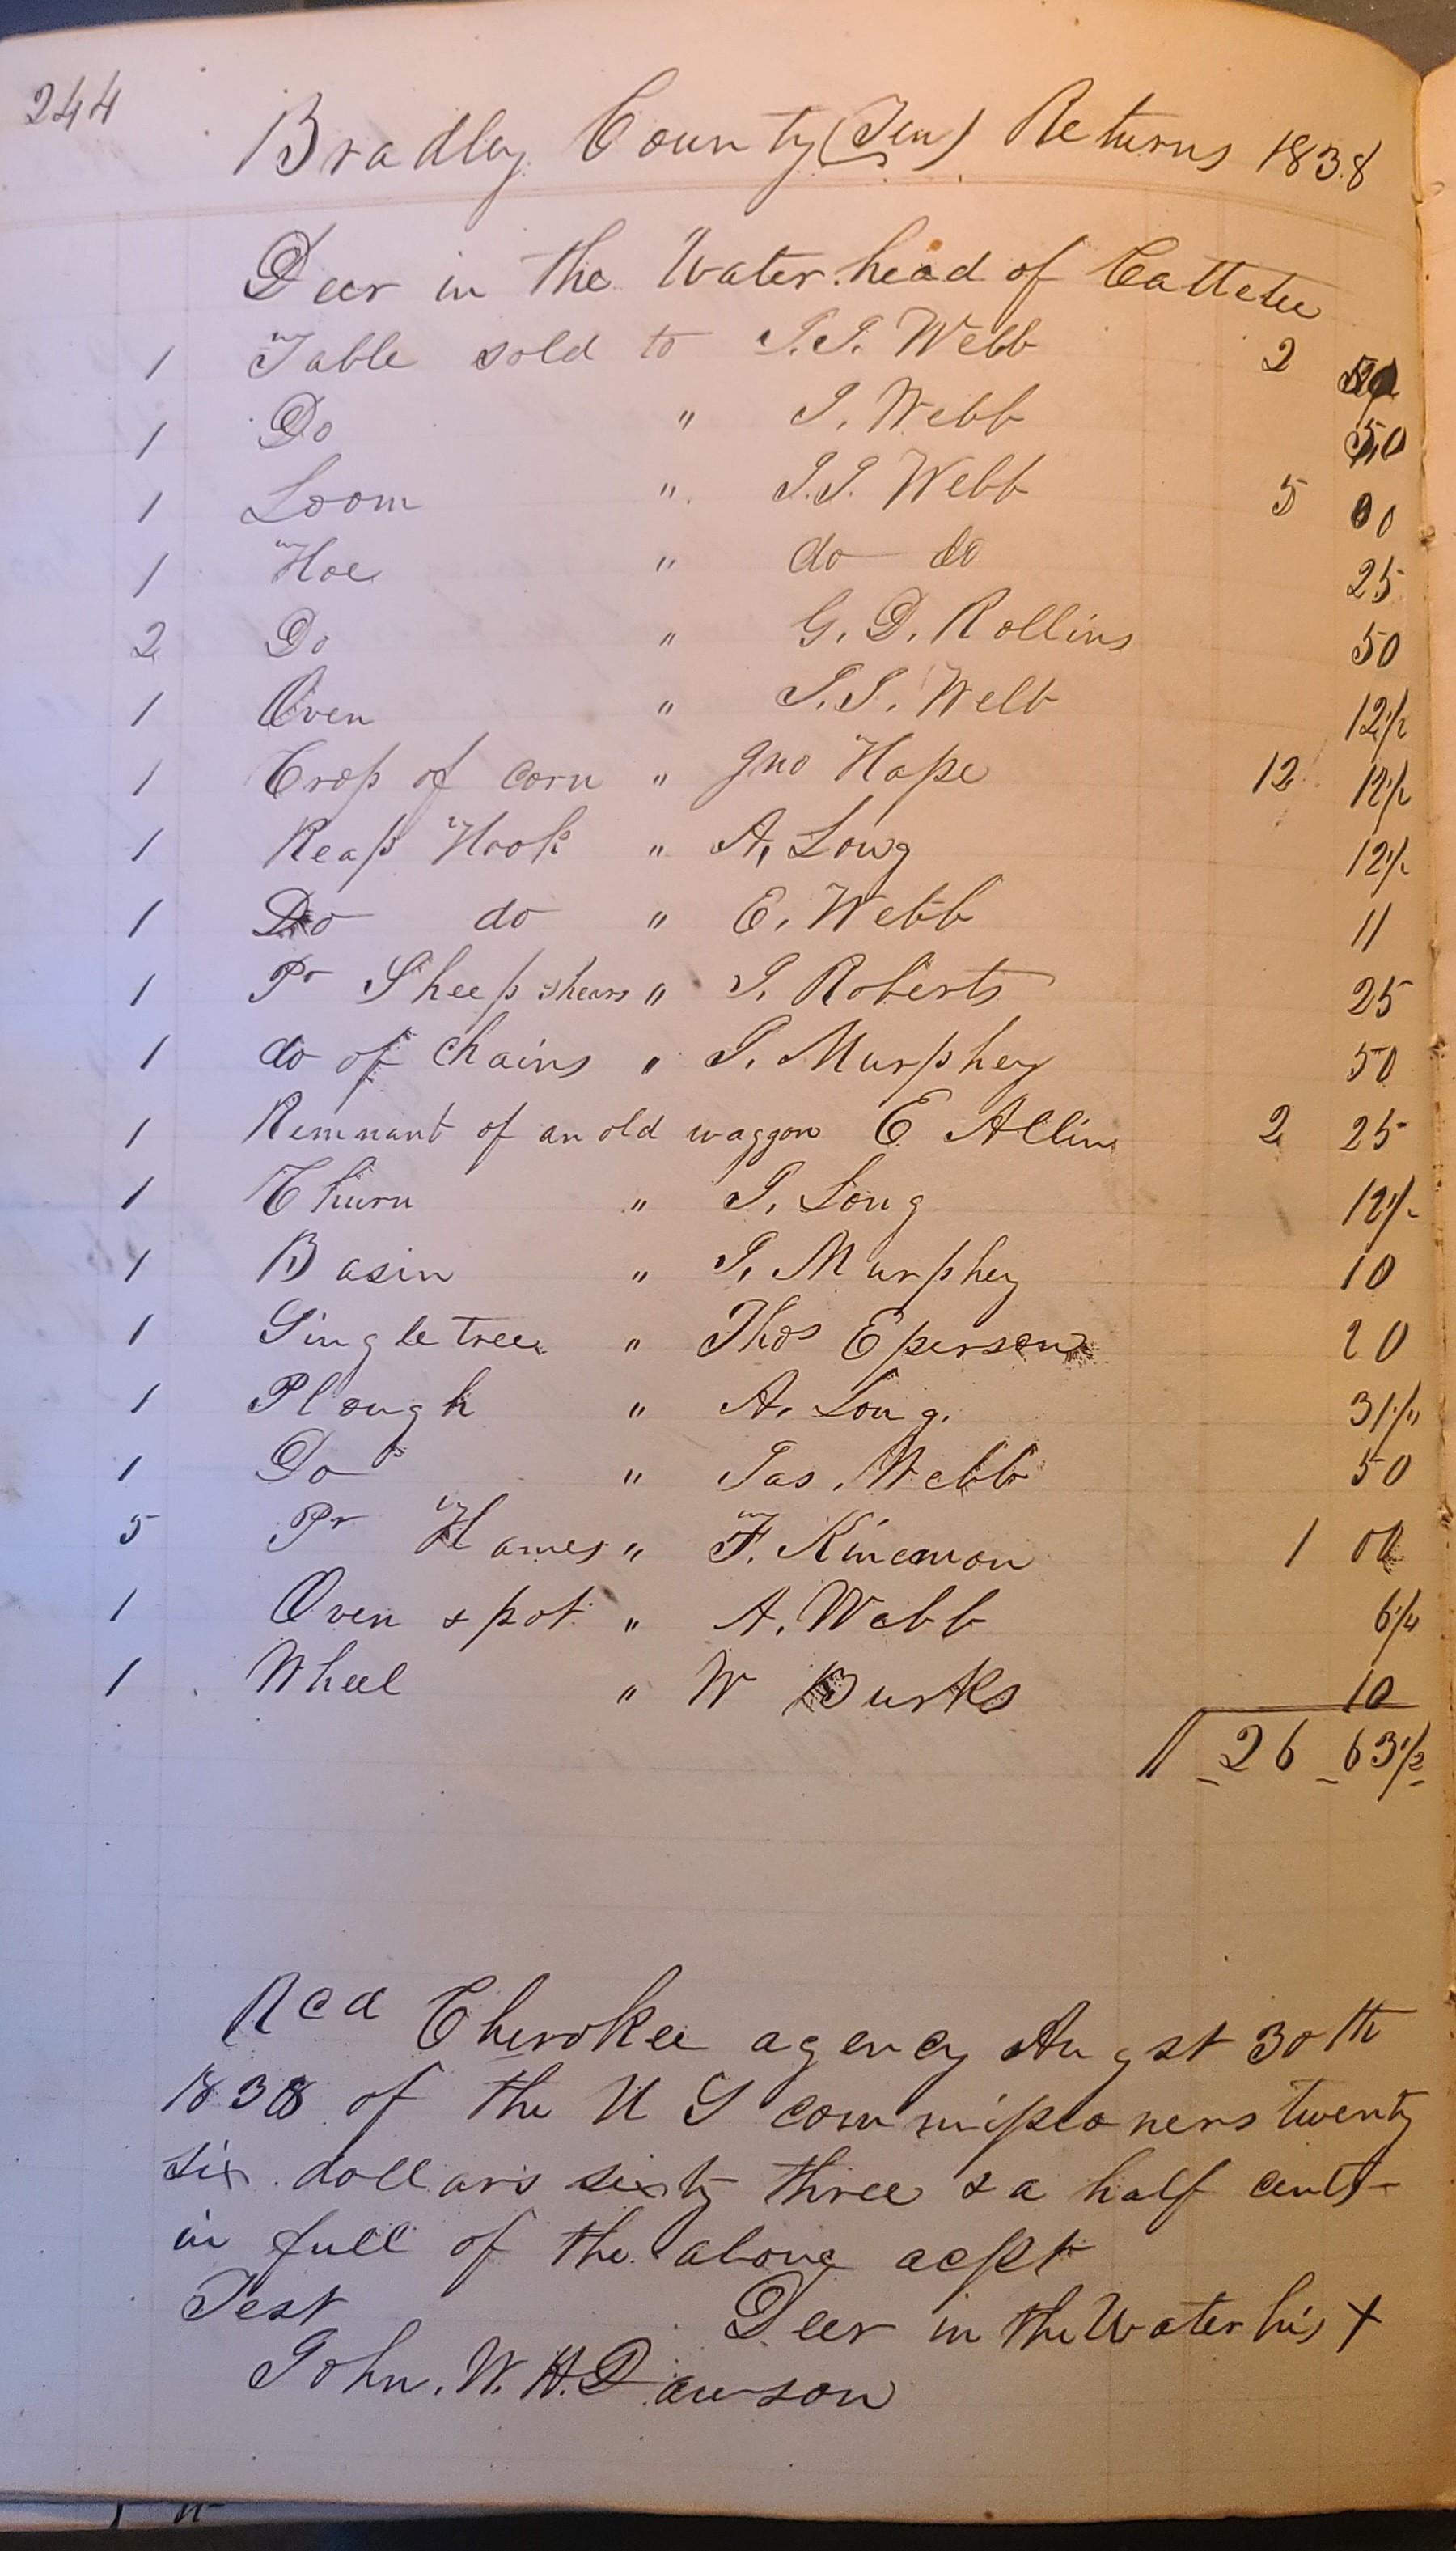 244
Bradley County (Ten) Returns 1838
Deer in the Water head of Cattetee
1 Table sold to J. J. Webb 2 50
1 Do " J. Webb 50
1 Loom " J. J. Webb 5 00
1 Hoe " do do 25
2 Do " G. D. Rollins 50
1 Oven " J. J. Webb 12 1/2
1 Crop of corn " Jno Hape 12 12 1/2
1 Reap Hook " A. Long 12 1/2
1 Do do " E. Webb 11
1 Pr Sheep shears " J. Roberts 25
1 do of chains " J. Murphey 50
1 Remnant of an old waggon E Allin 2 25
1 Churn " J. Long 12 1/2
1 Basin " J. Murphey 10
1 Single tree " Thos Eperson 20
1 Plough " A. Long. 31 1/4
1 Do " Jas. Webb 50
5 Pr Hames " F. Kincanon 1 00
1 Oven & pot " A. Webb 6 1/4
1 Wheel " W Burks 10
26 63 1/2
Rcd Cherokee agency Augst 30th
1838 of the U S commissioners twenty
six dollars sixty three & a half cents
in full of the above acpt
Test Deer in the Water his X
John. W. H. Dawson